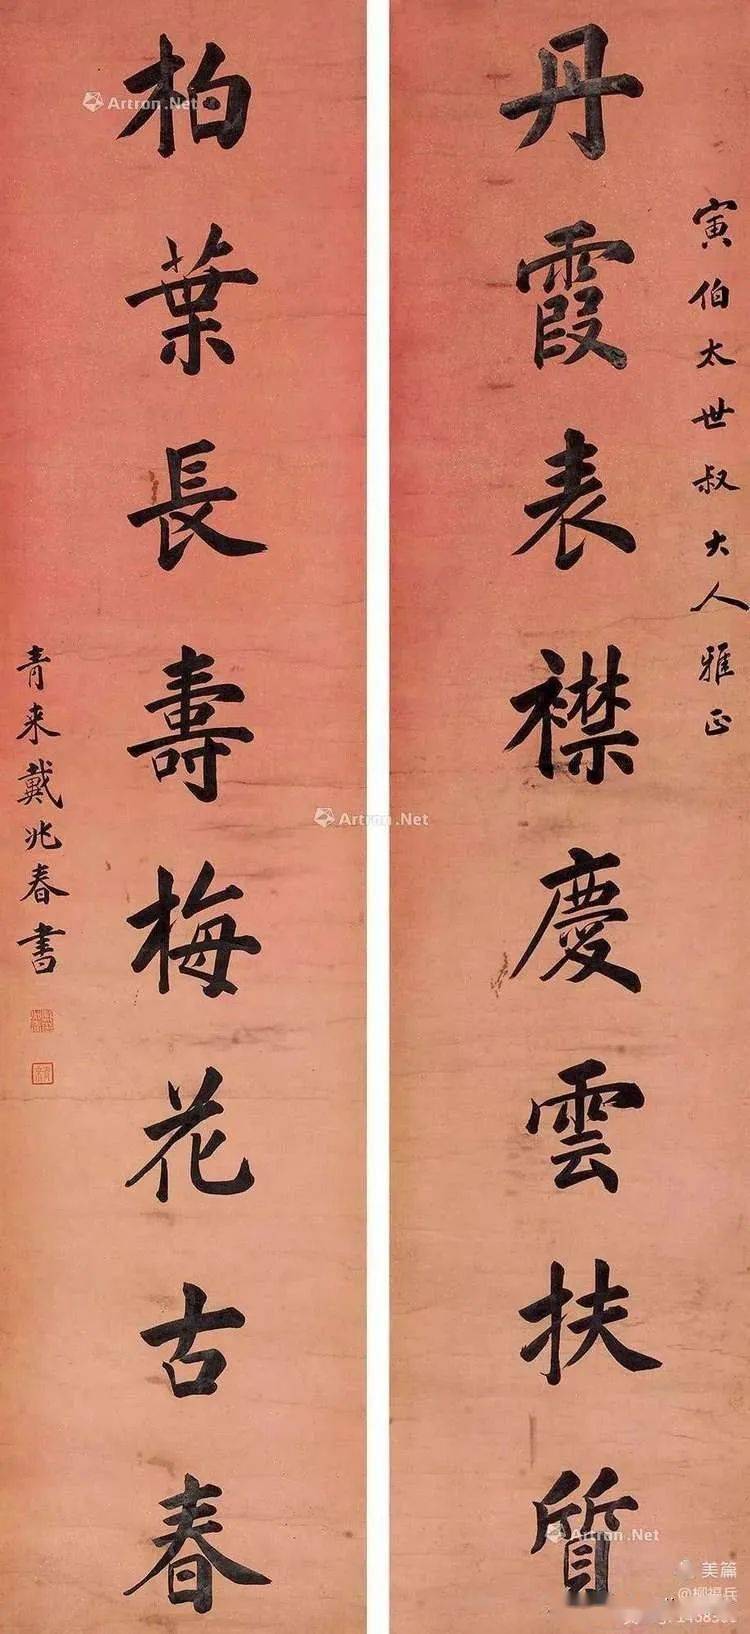 寅伯太世叔大人雅正
丹霞表襟慶雲扶質
柏葉長壽梅花古春
青来戴兆春書
Artron.Net
Artron.Net
Artron.Net
美篇
@柳福兵